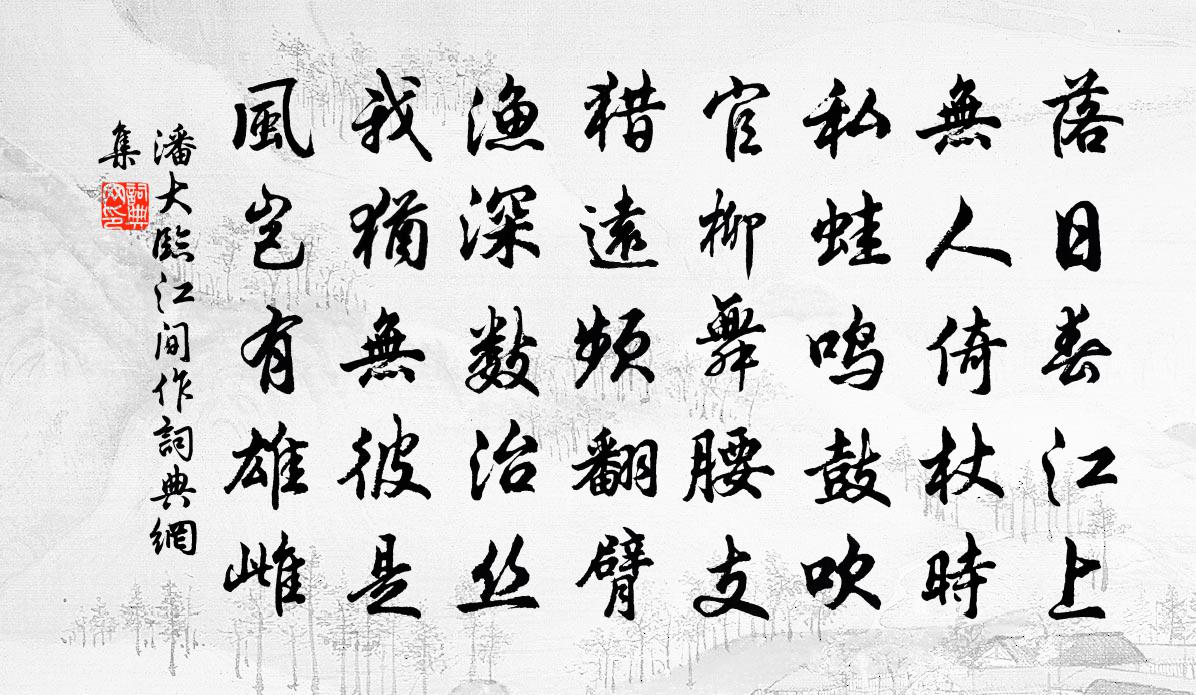 落日春江上
無人倚杖時
私蛙鳴鼓吹
官柳舞腰支
猎遠頻翻臂
漁深數治丝
我猶無彼是
風岂有雄雌
潘大臨江间作詞典網
集
詞典網印